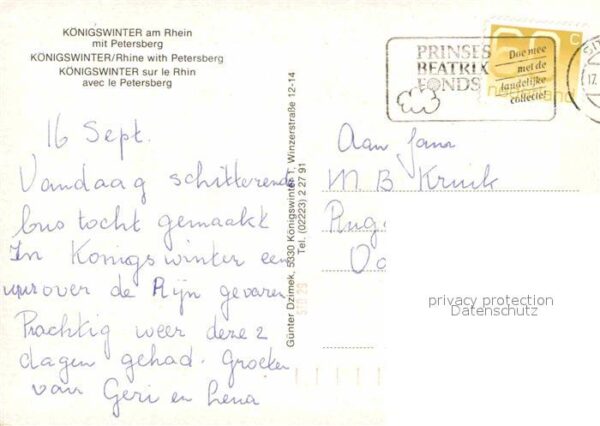 KÖNIGSWINTER am Rhein
mit Petersberg
KÖNIGSWINTER/Rhine with Petersberg
KÖNIGSWINTER sur le Rhin
avec le Petersberg
16 Sept.
Vandaag schitterende
bus tocht gemaakt
In Königswinter een
uur over de Rijn gevaren
Prachtig weer deze 2
dagen gehad. Groeten
van Geri en Lena
Günter Dzimek, 5330 Königswinter 1, Winzerstraße 12-14
Tel. (02223) 2 27 91
PRINSES
BEATRIX
FONDS
Doe mee
met de
landelijke
collecte!
60 c
nederland
17.
Aan Jans
M B Kruik
privacy protection
Datenschutz